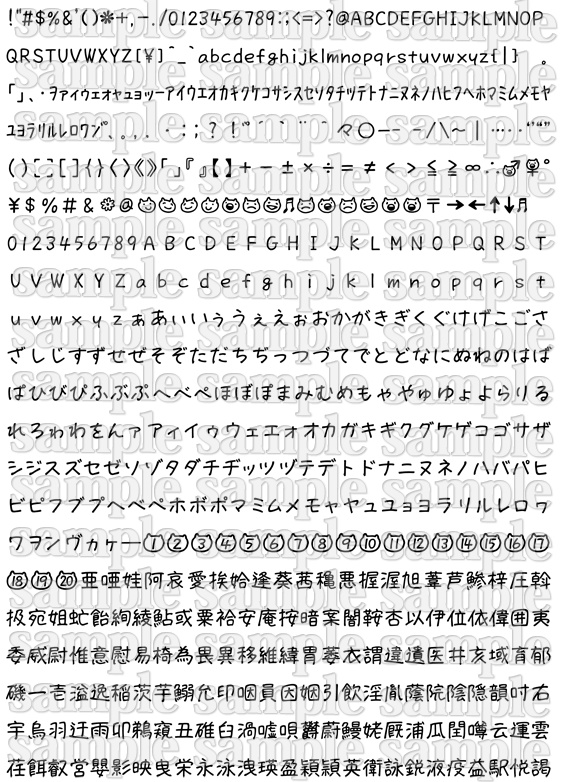 !"#$%&'()*+,-./0123456789:;<=>?@ABCDEFGHIJKLMNOP
QRSTUVWXYZ[¥]^_`abcdefghijklmnopqrstuvwxyz{|} 。
「」、・ヲァィゥェォャュョッーアイウエオカキクケコサシスセソタチツテトナニヌネノハヒフヘホマミムメモヤ
ユヨラリルレロワン゛、。,.・:;?!゛゜´`¨^ 々〇ー— -/\~|…‥‘’“”
()〔〕[]{}〈〉《》「」『』【】+-±×÷=≠<>≦≧∞∴♂♀°
¥$%#&*@♬〒→←↑↓♬
0123456789ABCDEFGHIJKLMNOPQRST
UVWXYZabcdefghijklmnopqrst
uvwxyzぁあぃいぅうぇえぉおかがきぎくぐけげこごさ
ざしじすずせぜそぞただちぢっつづてでとどなにぬねのはば
ぱひびぴふぶぷへべぺほぼぽまみむめもゃやゅゆょよらりる
れろゎわをんァアィイゥウェエォオカガキギクグケゲコゴサザ
シジスズセゼソゾタダチヂッツヅテデトドナニヌネノハバパヒ
ビピフブプヘベペホボポマミムメモャヤュユョヨラリルレロヮ
ワヲンヴヵヶー①②③④⑤⑥⑦⑧⑨⑩⑪⑫⑬⑭⑮⑯⑰
⑱⑲⑳亜唖娃阿哀愛挨姶逢葵茜穐悪握渥旭葦芦鯵梓圧斡
扱宛姐虻飴絢綾鮎或粟袷安庵按暗案闇鞍杏以伊位依偉囲夷
委威尉惟意慰易椅為畏異移維緯胃萎衣謂違遺医井亥域育郁
磯一壱溢逸稲茨芋鰯允印咽員因姻引飲淫胤蔭院陰隠韻吋右
宇烏羽迂雨卯鵜窺丑碓臼渦嘘唄欝蔚鰻姥厩浦瓜閏噂云運雲
荏餌叡営嬰影映曳栄永泳洩瑛盈穎頴英衛詠鋭液疫益駅悦謁
sample